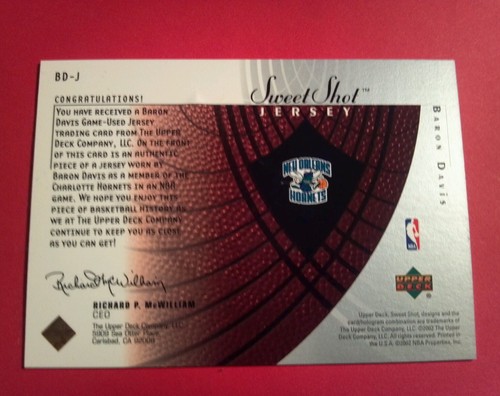 BD-J
CONGRATULATIONS!
YOU HAVE RECEIVED A BARON
DAVIS GAME-USED JERSEY
TRADING CARD FROM THE UPPER
DECK COMPANY, LLC. ON THE FRONT
OF THIS CARD IS AN AUTHENTIC
PIECE OF A JERSEY WORN BY
BARON DAVIS AS A MEMBER OF THE
CHARLOTTE HORNETS IN AN NBA
GAME. WE HOPE YOU ENJOY THIS
PIECE OF BASKETBALL HISTORY, AS
WE AT THE UPPER DECK COMPANY
CONTINUE TO KEEP YOU AS CLOSE
AS YOU CAN GET!
Richard P. McWilliam
RICHARD P. McWILLIAM
CEO
The Upper Deck Company, LLC
5909 Sea Otter Place
Carlsbad, CA 92008
Sweet Shot™
JERSEY
NEW ORLEANS
HORNETS
BARON DAVIS
NBA
UPPER
DECK
®
Upper Deck, Sweet Shot, designs and the
card/hologram combination are trademarks of
The Upper Deck Company, LLC. ©2002 The Upper
Deck Company, LLC. All rights reserved. Printed in
the U.S.A. ©2002 NBA Properties, Inc.